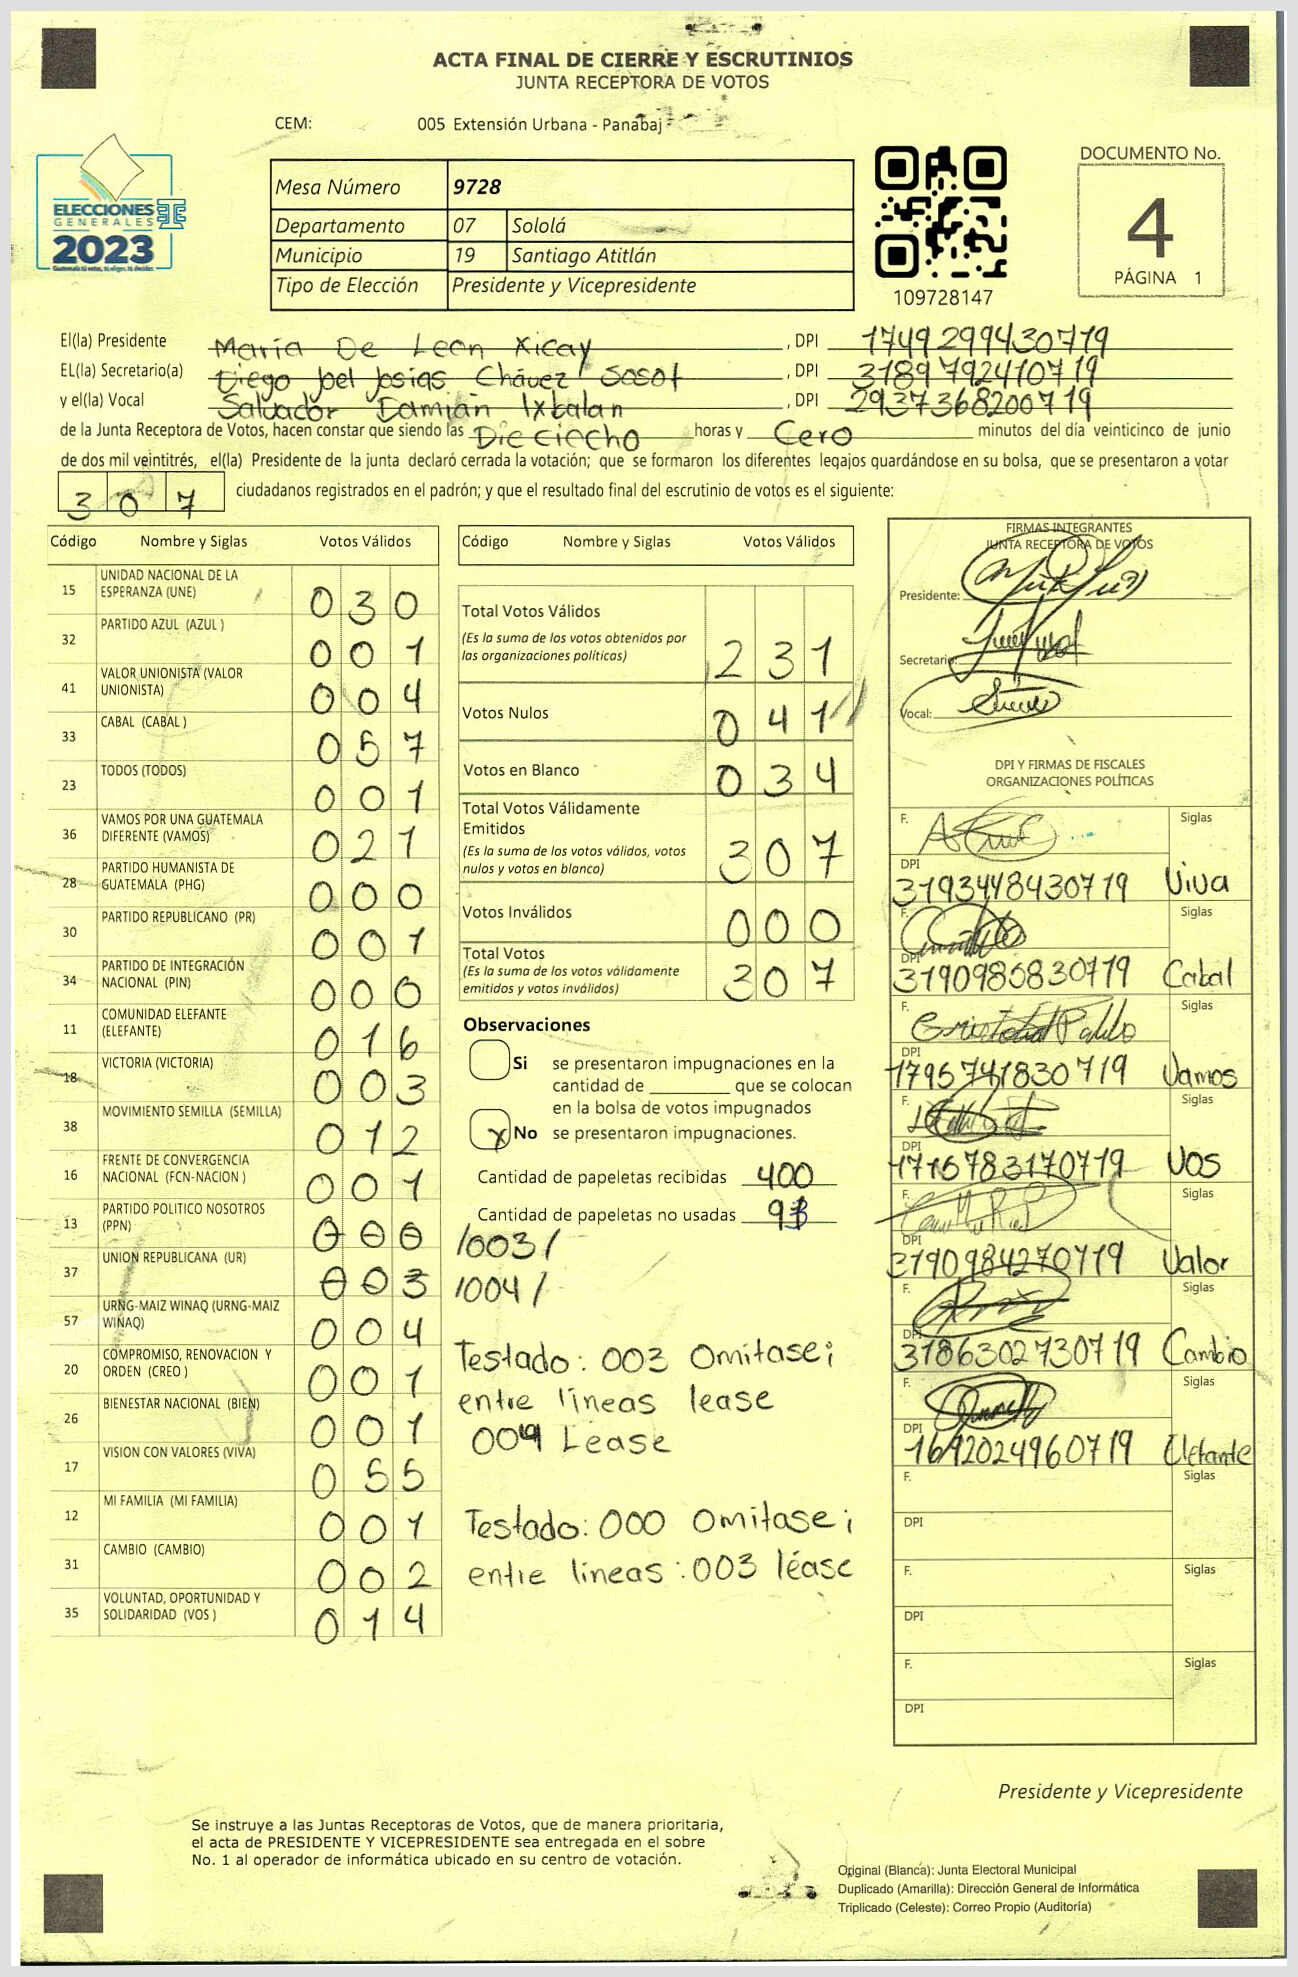 ACTA FINAL DE CIERRE Y ESCRUTINIOS
JUNTA RECEPTORA DE VOTOS
CEM: 005 Extensión Urbana - Panabaj
ELECCIONES
GENERALES
2023
Mesa Número 9728
Departamento 07 Sololá
Municipio 19 Santiago Atitlán
Tipo de Elección Presidente y Vicepresidente
109728147
DOCUMENTO No.
4
PÁGINA 1
El(la) Presidente María De Leon Xicay, DPI 1749299430719
EL(la) Secretario(a) Diego Joel Josias Chávez Sosof, DPI 3189792410719
y el(la) Vocal Salvador Damián Ixbalan, DPI 2937368200719
de la Junta Receptora de Votos, hacen constar que siendo las Dieciocho horas y Cero minutos del día veinticinco de junio
de dos mil veintitrés, el(la) Presidente de la junta declaró cerrada la votación; que se formaron los diferentes legajos guardándose en su bolsa, que se presentaron a votar
307 ciudadanos registrados en el padrón; y que el resultado final del escrutinio de votos es el siguiente:
Código Nombre y Siglas Votos Válidos
15 UNIDAD NACIONAL DE LA ESPERANZA (UNE) 030
32 PARTIDO AZUL (AZUL ) 001
41 VALOR UNIONISTA (VALOR UNIONISTA) 004
33 CABAL (CABAL ) 057
23 TODOS (TODOS) 001
36 VAMOS POR UNA GUATEMALA DIFERENTE (VAMOS) 021
28 PARTIDO HUMANISTA DE GUATEMALA (PHG) 000
30 PARTIDO REPUBLICANO (PR) 001
34 PARTIDO DE INTEGRACIÓN NACIONAL (PIN) 000
11 COMUNIDAD ELEFANTE (ELEFANTE) 016
18 VICTORIA (VICTORIA) 003
38 MOVIMIENTO SEMILLA (SEMILLA) 012
16 FRENTE DE CONVERGENCIA NACIONAL (FCN-NACION ) 001
13 PARTIDO POLITICO NOSOTROS (PPN) 000
/003/
37 UNION REPUBLICANA (UR) 003
/004/
57 URNG-MAIZ WINAQ (URNG-MAIZ WINAQ) 004
20 COMPROMISO, RENOVACION Y ORDEN (CREO ) 001
26 BIENESTAR NACIONAL (BIEN) 001
17 VISION CON VALORES (VIVA) 055
12 MI FAMILIA (MI FAMILIA) 001
31 CAMBIO (CAMBIO) 002
35 VOLUNTAD, OPORTUNIDAD Y SOLIDARIDAD (VOS ) 014
Código Nombre y Siglas Votos Válidos
Total Votos Válidos 231
(Es la suma de los votos obtenidos por
las organizaciones políticas)
Votos Nulos 041
Votos en Blanco 034
Total Votos Válidamente
Emitidos 307
(Es la suma de los votos válidos, votos
nulos y votos en blanco)
Votos Inválidos 000
Total Votos 307
(Es la suma de los votos válidamente
emitidos y votos inválidos)
Observaciones
Si se presentaron impugnaciones en la
cantidad de ________ que se colocan
en la bolsa de votos impugnados
X No se presentaron impugnaciones.
Cantidad de papeletas recibidas 400
Cantidad de papeletas no usadas 93
Testado: 003 Omitase;
entre lineas lease
004 Lease
Testado: 000 Omitase;
entre lineas : 003 léase
FIRMAS INTEGRANTES
JUNTA RECEPTORA DE VOTOS
Presidente:
Secretario:
Vocal:
DPI Y FIRMAS DE FISCALES
ORGANIZACIONES POLÍTICAS
F. Siglas
DPI 3193448430719 Viva
F. Siglas
DPI 3190985830719 Cabal
F. Cristobal Pablo Siglas
DPI 1795741830719 Vamos
F. Siglas
DPI 1715783170719 VOS
F. Siglas
DPI 3190984270719 Valor
F. Siglas
DPI 3186302730719 Cambio
F. Siglas
DPI 1692024960719 Elefante
F. Siglas
DPI
F. Siglas
DPI
F. Siglas
DPI
Presidente y Vicepresidente
Se instruye a las Juntas Receptoras de Votos, que de manera prioritaria,
el acta de PRESIDENTE Y VICEPRESIDENTE sea entregada en el sobre
No. 1 al operador de informática ubicado en su centro de votación.
Original (Blanca): Junta Electoral Municipal
Duplicado (Amarilla): Dirección General de Informática
Triplicado (Celeste): Correo Propio (Auditoría)